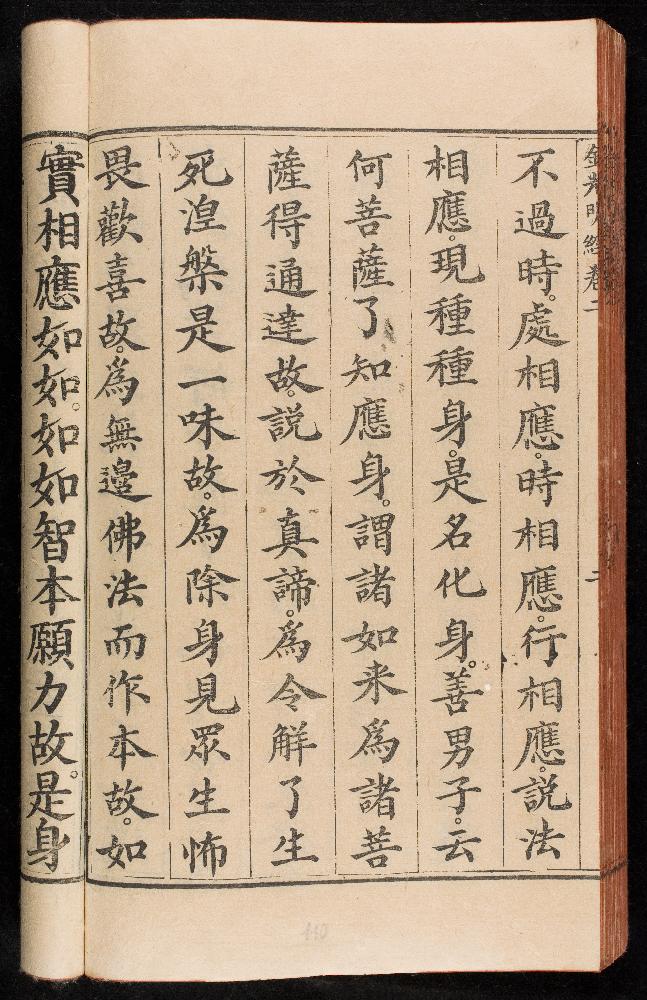 金光明經卷二
二
不過時。處相應。時相應。行相應。說法
相應。現種種身。是名化身。善男子。云
何菩薩了知應身。謂諸如来為諸菩
薩得通達故。說於真諦。為令解了生
死湼槃是一味故。為除身見眾生怖
畏歡喜故。為無邊佛法而作本故。如
實相應如如。如如智本願力故。是身
110